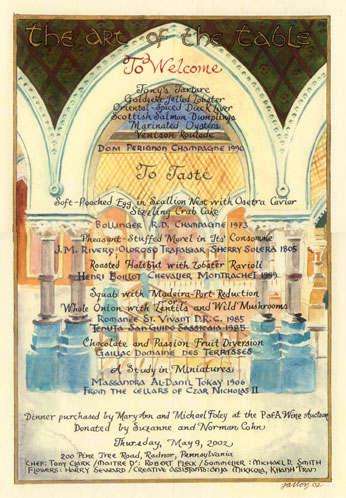 the art of the table
To Welcome
Tony's Tartare
Goldsekt Jelled Lobster
Oriental-Spiced Duck liver
Scottish Salmon Dumplings
Marinated Oysters
Venison Roulade
Dom Perignon Champagne 1990
To Taste
Soft-Poached Egg in Scallion Nest with Osetra Cavier
Sizzling Crab Cake
Bollinger R.D. Champagne 1973
Pheasant-Stuffed Morel in Its Consomme
J.M. Rivero Oloroso Trafalgar Sherry Solera 1805
Roasted Halibut with Lobster Ravioli
Henri Boillot Chevalier Montrachet 1999
Squab with Madeira-Port Reduction
or
Whole Onion with Lentils and Wild Mushrooms
Romanée St. Vivant D.R.C. 1985
Tenuta San Guido Sassicaia 1985
Chocolate and Passion Fruit Diversion
Gaillac Domaine des Terrisses
A Study in Miniatures
Massandra Al-Danil Tokay 1906
From the cellars of Czar Nicholas II
Dinner purchased by Mary Ann and Michael Foley at the PAFA Wine Auction
Donated by Suzanne and Norman Cohn
Thursday, May 9, 2002
200 Pine Tree Road, Radnor, Pennsylvania
Chef: Tony Clark / Maitre D': Robert Fleck / Sommelier: Michael D. Smith
Flowers: Harry Seward / Creative Assistants: Sonja Mikkola, Khanh Tran
02